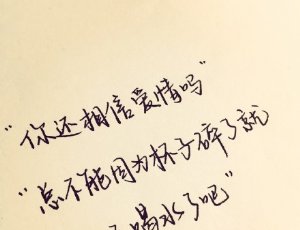 “你还相信爱情吗”
“总不能因为杯子碎了就
喝水了吧”